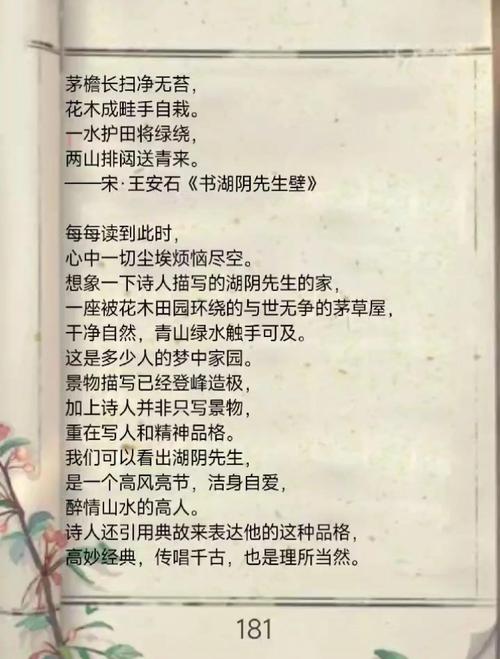 茅檐长扫净无苔，
花木成畦手自栽。
一水护田将绿绕，
两山排闼送青来。
——宋·王安石《书湖阴先生壁》
每每读到此时，
心中一切尘埃烦恼尽空。
想象一下诗人描写的湖阴先生的家，
一座被花木田园环绕的与世无争的茅草屋，
干净自然，青山绿水触手可及。
这是多少人的梦中家园。
景物描写已经登峰造极，
加上诗人并非只写景物，
重在写人和精神品格。
我们可以看出湖阴先生，
是一个高风亮节，洁身自爱，
醉情山水的高人。
诗人还引用典故来表达他的这种品格，
高妙经典，传唱千古，也是理所当然。
181